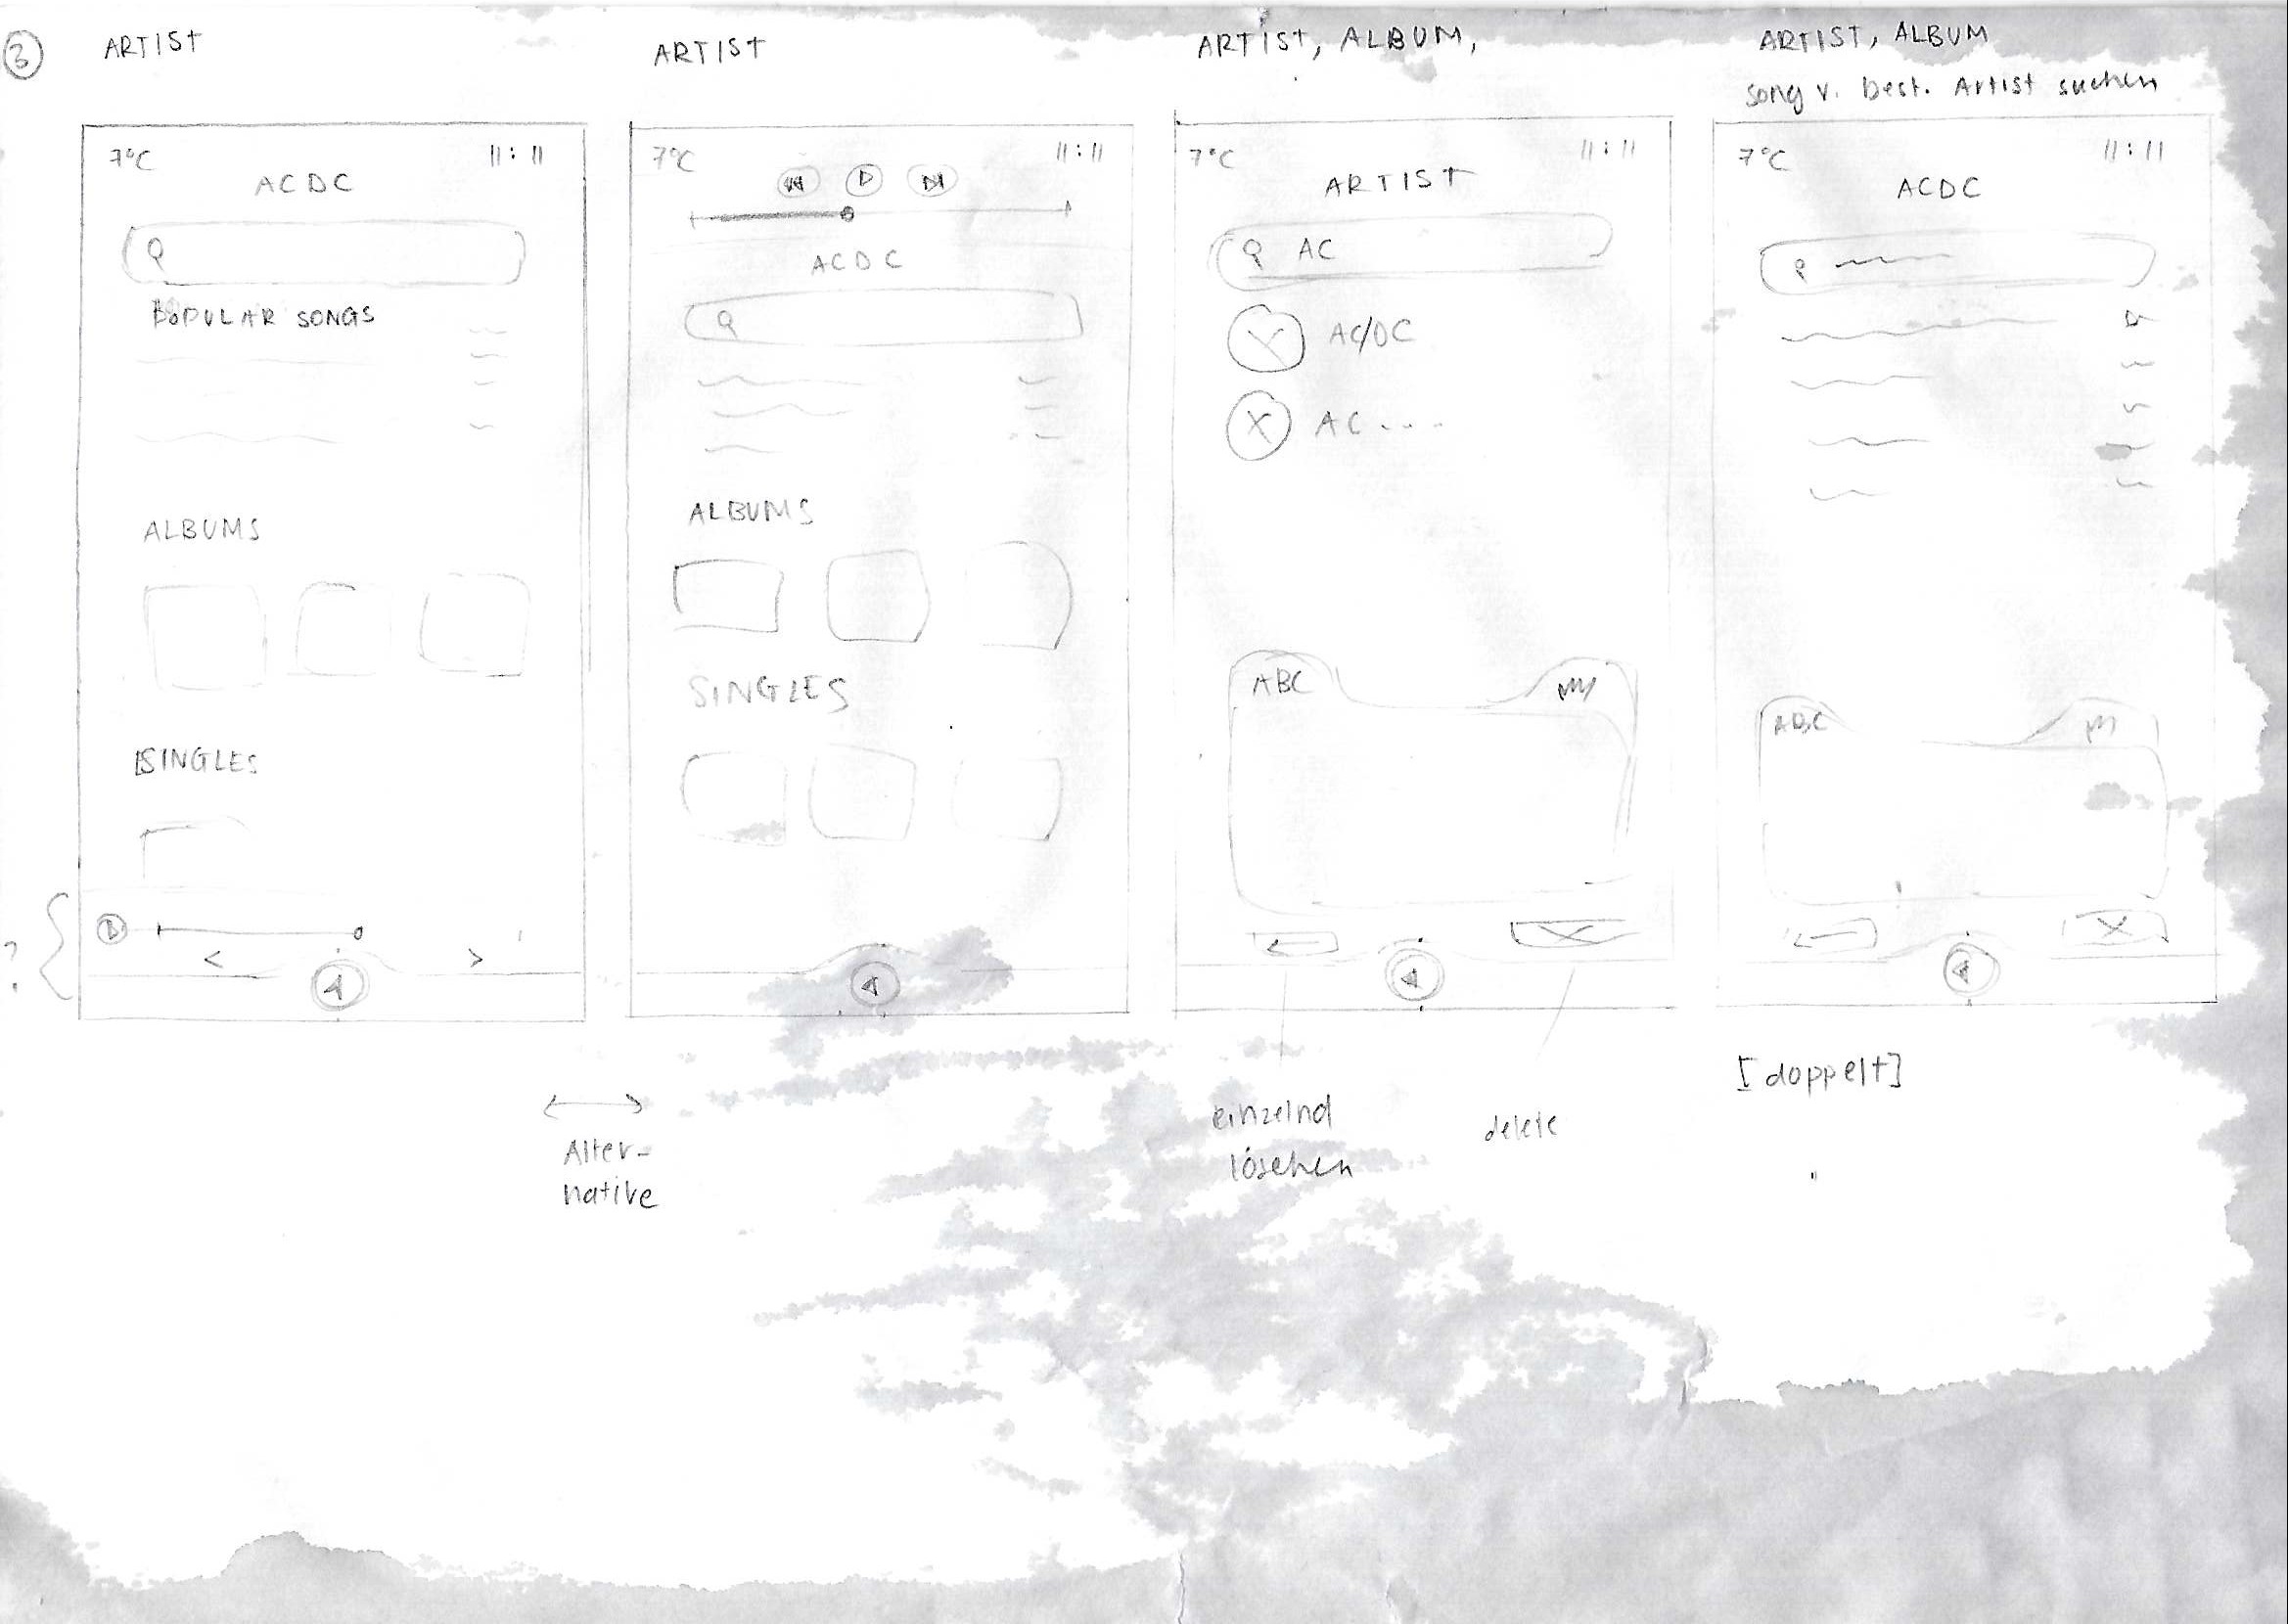 3
ARTIST
7°C
11:11
ACDC
POPULAR SONGS
ALBUMS
SINGLES
?
<
>
ARTIST
7°C
11:11
ACDC
ALBUMS
SINGLES
Alter-
native
ARTIST, ALBUM,
7°C
11:11
ARTIST
AC
AC/DC
AC...
ABC
einzelnd
löschen
delete
ARTIST, ALBUM
song v. best. Artist suchen
7°C
11:11
ACDC
ABC
[doppelt]